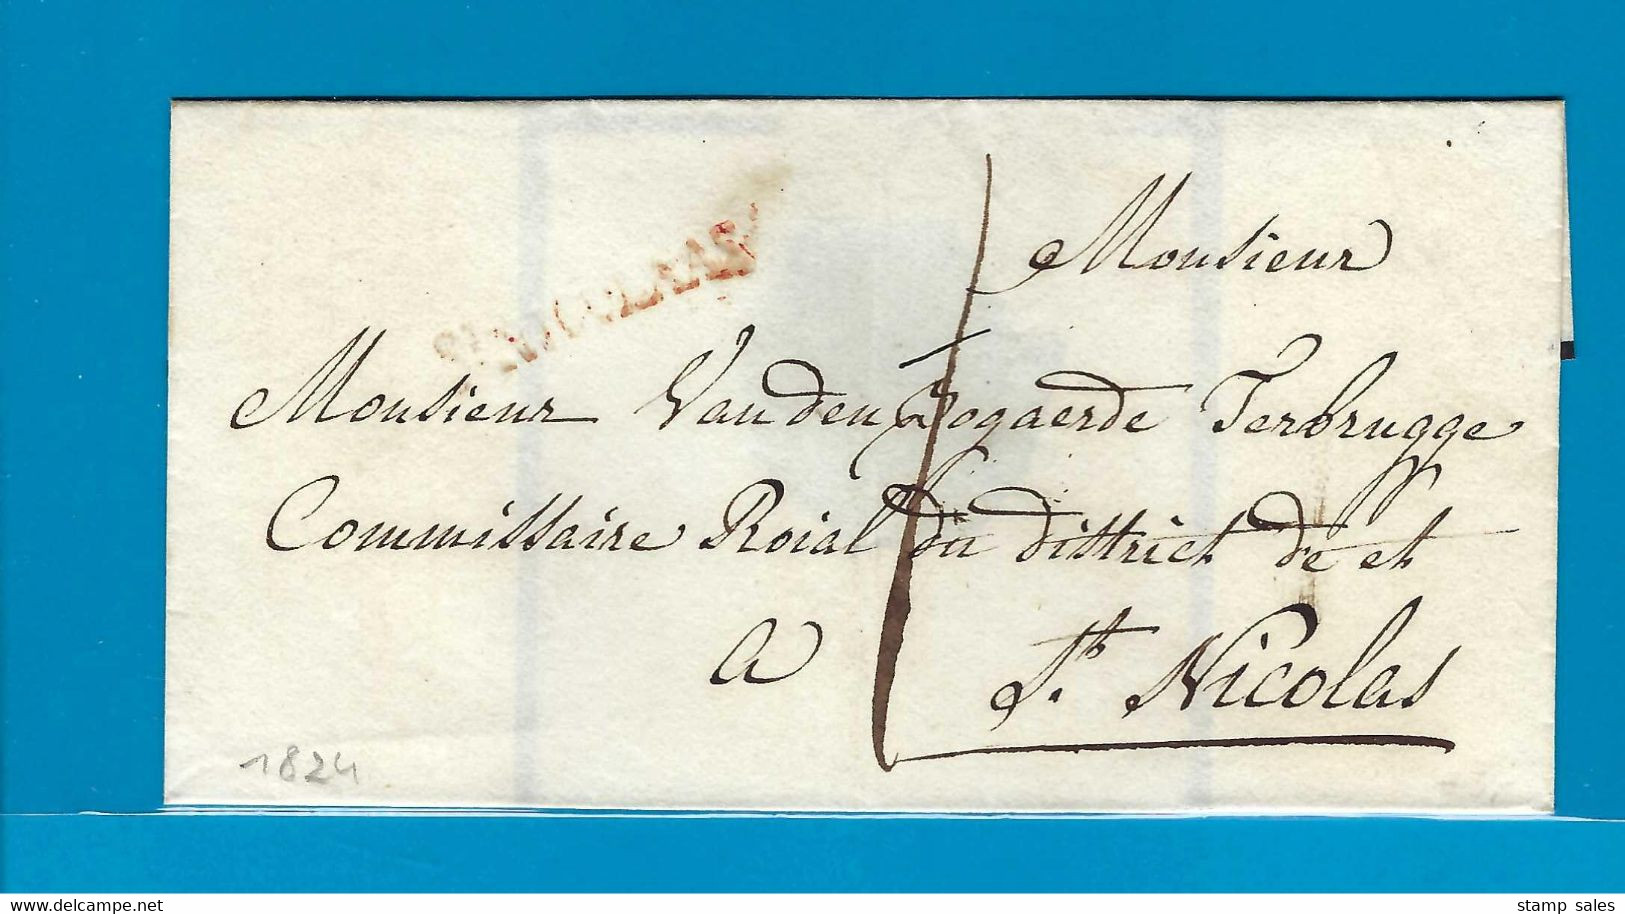 Monsieur
Monsieur Van den Bogaerde Terbrugge
Commissaire Roial du district de et
a St. Nicolas
1824
www.delcampe.net
stamp sales